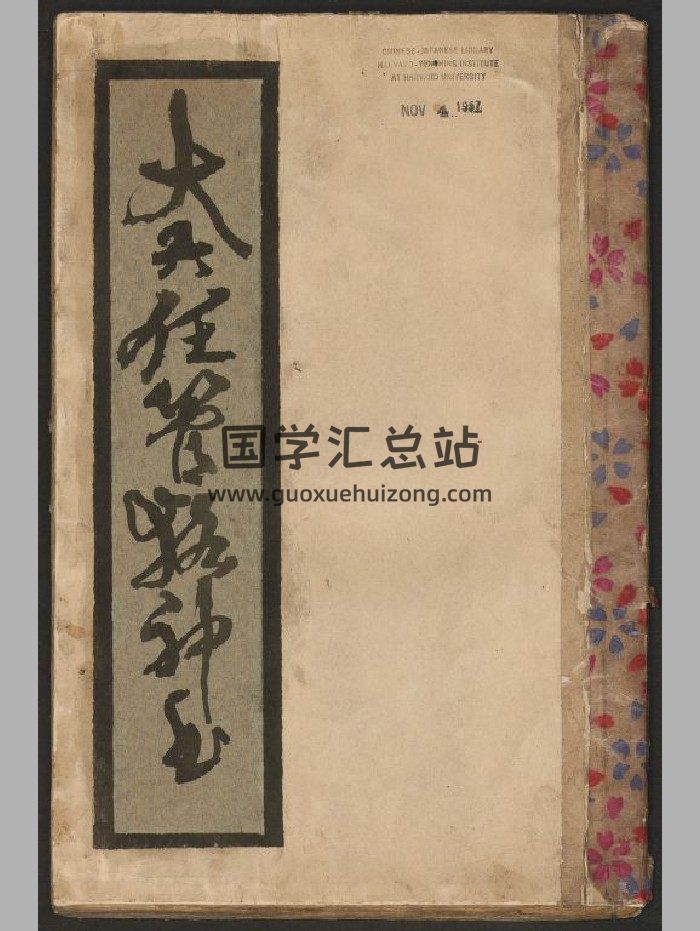 CHINESE-JAPANESE LIBRARY
HARVARD-YENCHING INSTITUTE
AT HARVARD UNIVERSITY
NOV 4 1957
大六任管輅神書
国学汇总站
www.guoxuehuizong.com